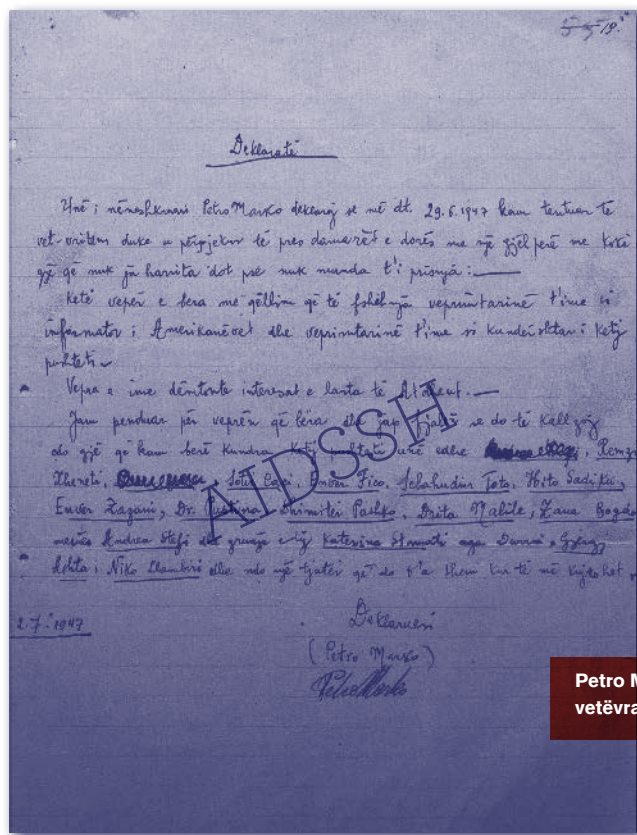 Deklaratë
Unë i nënëshkruari Petro Marko deklaroj se më dt. 29.6.1947 kam tentuar të
vet-vritem duke u përpjekur të pres damarët e dorës me një gjelpërë me kokë
gjë që nuk ja harrita dot pse nuk munda t'i prisnja :—
Ketë vepër e bera me qëllim që të fshehnja veprimtarinë t'ime si
informator i Amerikanëvet dhe veprimtarinë t'ime si kundërshtar i ketij
pushteti.
Vepra e ime dëmtonte interesat e larta të Atdheut.—
Jam penduar për veprën që bëra dhe jap fjalën se do të kallzoj
do gjë që kam berë kundra ketij pushteti unë edhe
Xheneti, Enver Fico, Selahudin Toto, Hito Sadiku,
Enver Zazani, Dr. Dhimiter Pashko, Drita
Andrea Stefi dhe gruaja e tij Katerina nga Durrsi, Gjergj
Niko dhe ndo një tjatër që do t'a them kur të më kujtohet
2.7.1947
Deklaruesi
(Petro Marko)
Petro Marko
AIDSSH
Petro M
vetëvra